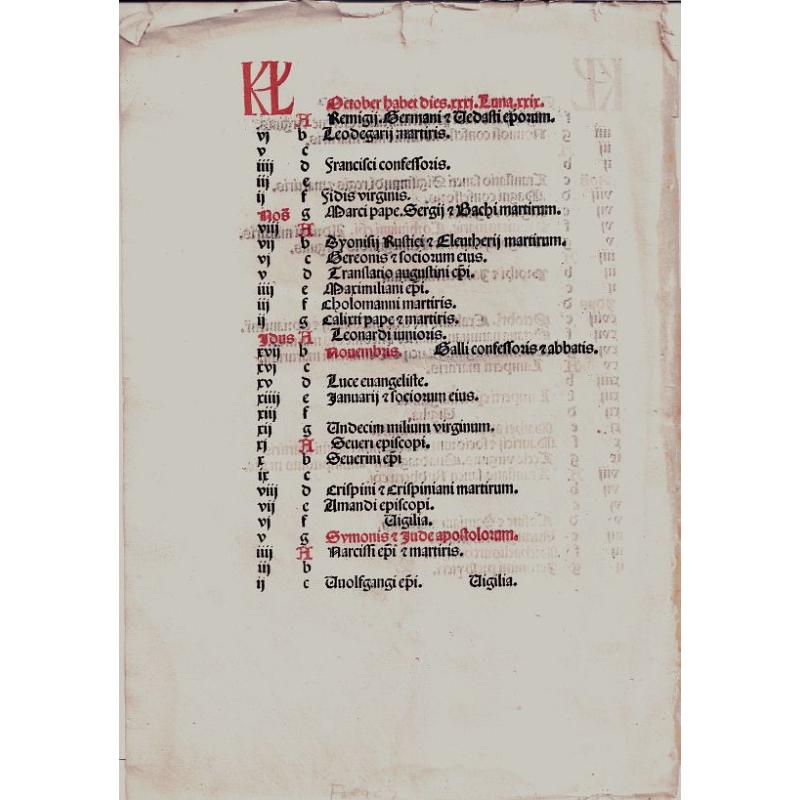 KL
October habet dies.xxxj.Luna.xxix.
A Remigij.Germani ⁊ Uedasti ep̄orum.
vj b Leodegarij martiris.
v c
iiij d Francisci confessoris.
iij e
ij f Fidis virginis.
Noñ g Marci pape.Sergij ⁊ Bachi martirum.
viij A
vij b Dyonisij Rustici ⁊ Eleutherij martirum.
vj c Gereonis ⁊ sociorum eius.
v d Translatio augustini ep̄i.
iiij e Maximiliani ep̄i.
iij f Cholomanni martiris.
ij g Calixti pape ⁊ martiris.
Jdus A Leonardi iunioris.
xvij b Nouembris. Galli confessoris ⁊ abbatis.
xvj c
xv d Luce euangeliste.
xiiij e Januarij ⁊ sociorum eius.
xiij f
xij g Undecim milium virginum.
xj A Seueri episcopi.
x b Seuerini ep̄i
ix c
viij d Crispini ⁊ Crispiniani martirum.
vij e Amandi episcopi.
vj f Uigilia.
v g Symonis ⁊ Jude apostolorum.
iiij A Narcissi ep̄i ⁊ martiris.
iij b
ij c Uuolfgangi ep̄i. Uigilia.